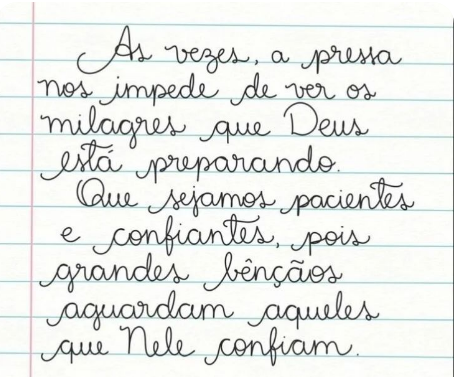 As vezes, a pressa
nos impede de ver os
milagres que Deus
está preparando.
Que sejamos pacientes
e confiantes, pois
grandes bênçãos
aguardam aqueles
que Nele confiam.